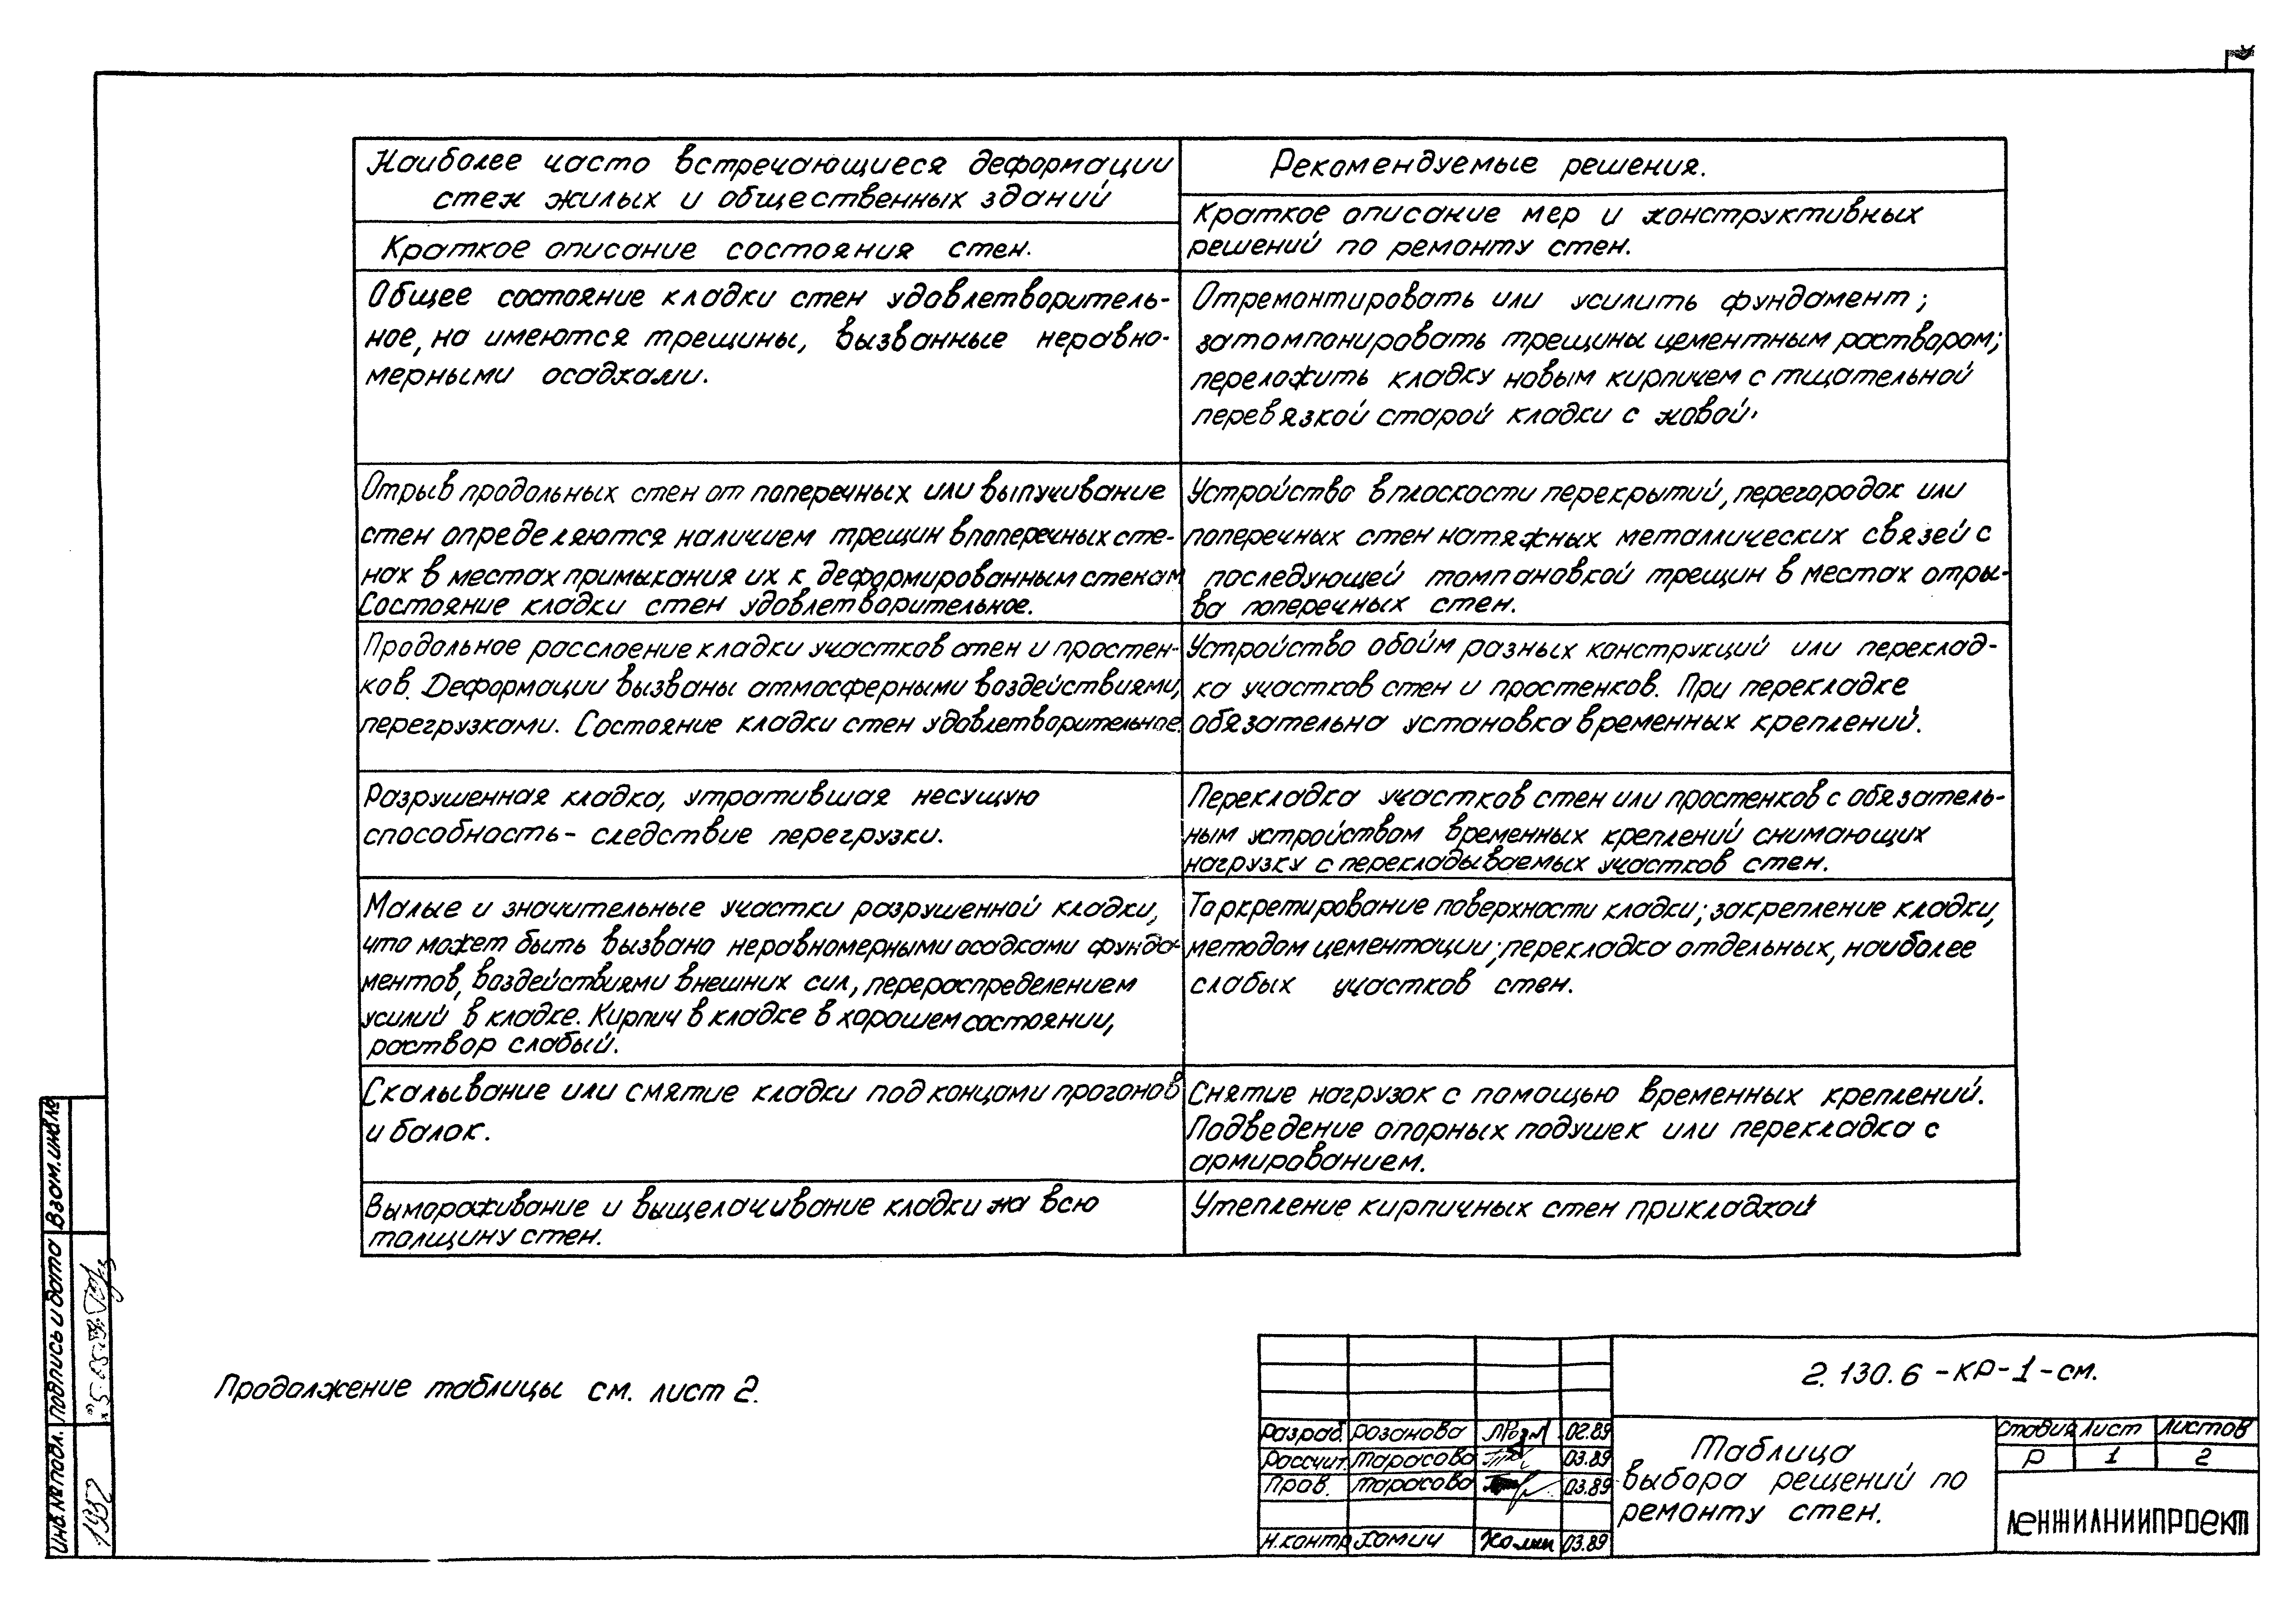 Наиболее часто встречающиеся деформации
стен жилых и общественных зданий
Краткое описание состояния стен.
Рекомендуемые решения.
Краткое описание мер и конструктивных
решений по ремонту стен.
Общее состояние кладки стен удовлетворитель-
ное, но имеются трещины, вызванные неравно-
мерными осадками.
Отремонтировать или усилить фундамент;
затампонировать трещины цементным раствором;
переложить кладку новым кирпичем с тщательной
перевязкой старой кладки с новой.
Отрыв продольных стен от поперечных или выпучивание
стен определяются наличием трещин в поперечных сте-
нах в местах примыкания их к деформированным стенам
Состояние кладки стен удовлетворительное.
Устройство в плоскости перекрытий, перегородок или
поперечных стен натяжных металлических связей с
последующей тампановкой трещин в местах отры-
ва поперечных стен.
Продольное расслоение кладки участков стен и простен-
ков. Деформации вызваны атмосферными воздействиями,
перегрузками. Состояние кладки стен удовлетворительное.
Устройство обойм разных конструкций или переклад-
ка участков стен и простенков. При перекладке
обязательна установка временных креплений.
Разрушенная кладка, утратившая несущую
способность - следствие перегрузки.
Перекладка участков стен или простенков с обязатель-
ным устройством временных креплений снимающих
нагрузку с перекладываемых участков стен.
Малые и значительные участки разрушенной кладки,
что может быть вызвано неравномерными осадками фунда-
ментов, воздействиями внешних сил, перераспределением
усилий в кладке. Кирпич в кладке в хорошем состоянии,
раствор слабый.
Торкретирование поверхности кладки; закрепление кладки,
методом цементации; перекладка отдельных, наиболее
слабых участков стен.
Скалывание или смятие кладки под концами прогонов
и балок.
Снятие нагрузок с помощью временных креплений.
Подведение опорных подушек или перекладка с
армированием.
Вымораживание и выщелачивание кладки на всю
толщину стен.
Утепление кирпичных стен прикладкой
Продолжение таблицы см. лист 2.
2.130.6 -КР-1-см.
Разраб. Розанова 02.89
Рассчит. Тарасова 03.89
Пров. Тарасова 03.89
Н.контр Хомич 03.89
Таблица
выбора решений по
ремонту стен.
Стадия Лист Листов
Р 1 2
ЛЕНЖИЛНИИПРОЕКТ
Взам.инв.№
Подпись и дата
Инв.№ подл.